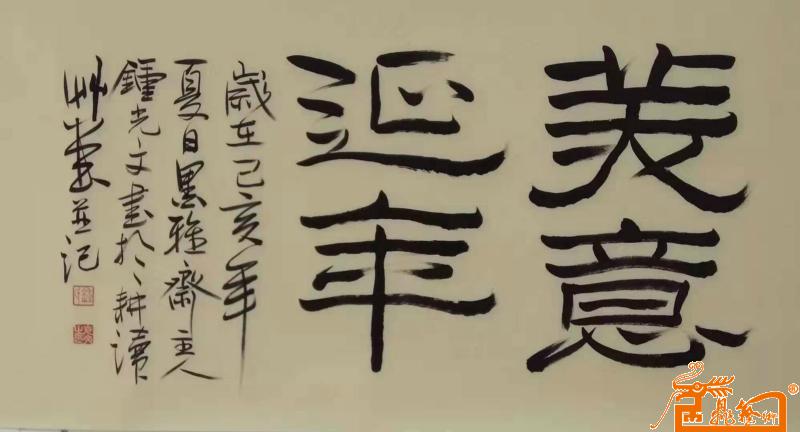 美意
延年
歲在己亥年
夏日墨雅齋主人
鍾光文書於耕讀
草堂並记